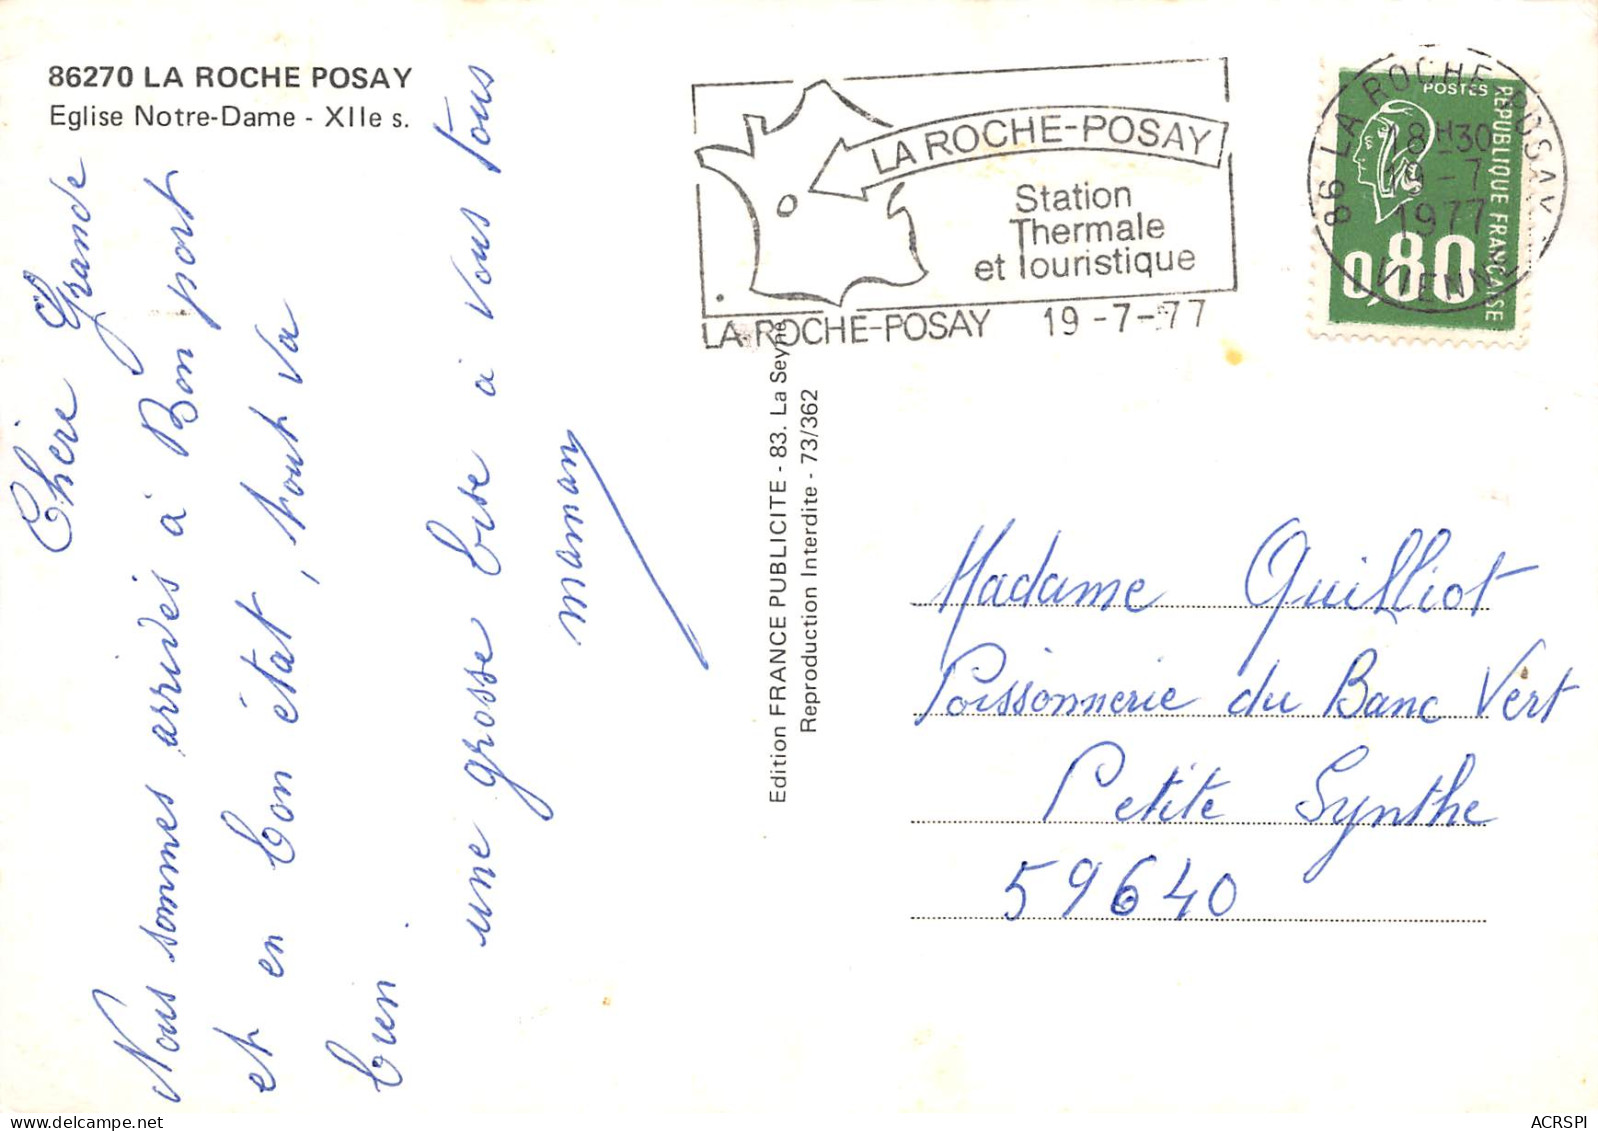 86270 LA ROCHE POSAY
Eglise Notre-Dame - XIIe s.
Chère Grande
Nous sommes arrivés à Bon port
et en bon état, tout va
bien.
une grosse bise à vous tous
maman
Edition FRANCE PUBLICITE - 83. La Seyne
Reproduction Interdite - 73/362
LA ROCHE-POSAY
Station
Thermale
et Touristique
LA ROCHE-POSAY 19-7-77
86 LA ROCHE POSAY
18H30
19-7
1977
VIENNE
POSTES
REPUBLIQUE FRANÇAISE
0,80
Madame Quilliot
Poissonnerie du Banc Vert
Petite Synthe
59640
ACRSPI